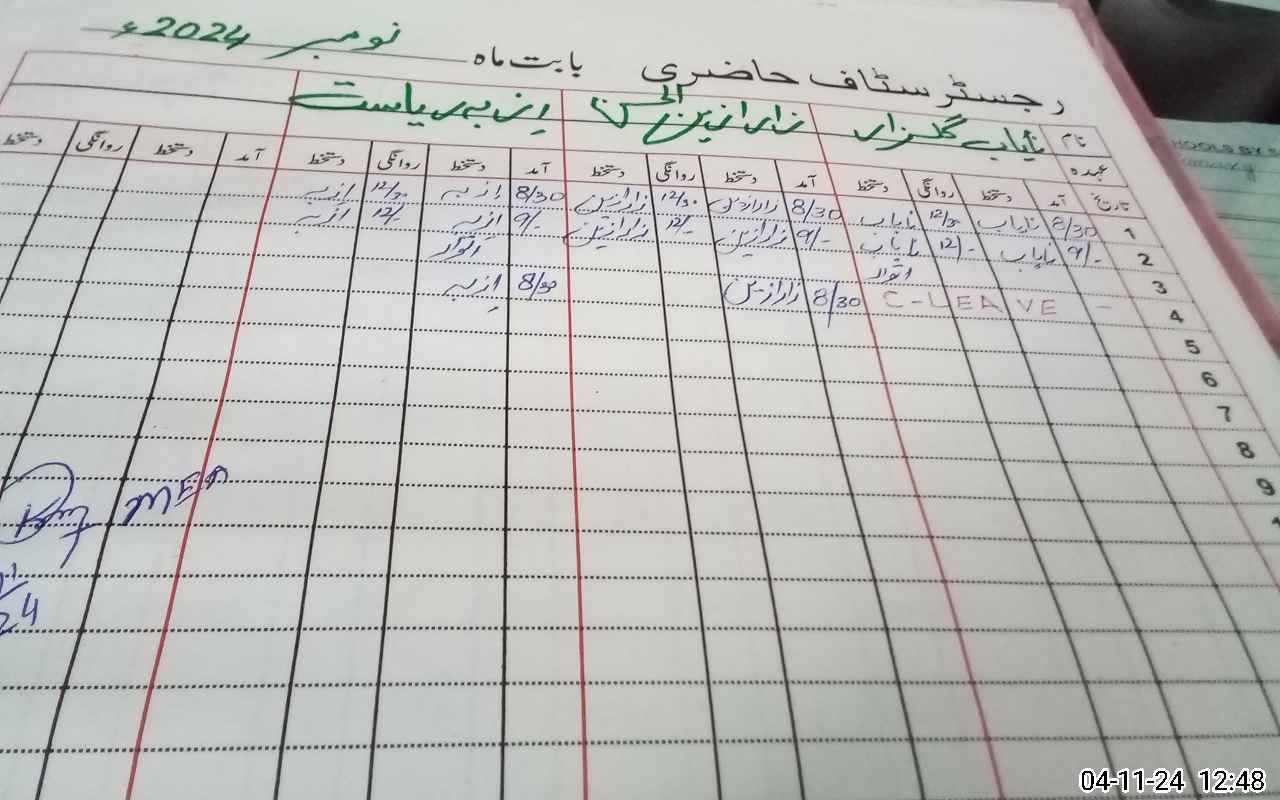 رجسٹر سٹاف حاضری بابت ماہ نومبر 2024ء
نام نایاب گلزار زارا زین الحسن
عہدہ
تاریخ آمد دستخط روانگی دستخط آمد دستخط روانگی دستخط آمد دستخط روانگی دستخط آمد دستخط روانگی دستخط
1 8/30 نایاب 12/30 نایاب 8/30 زارا زین 12/30 زارا زین 8/30 12/30
2 9/- نایاب 12/- نایاب 9/- زارا زین 12/- زارا زین 9/- 12/-
3 اتوار اتوار
4 C-LEAVE - 8/30 زارا زین 8/30
5
6
7
8
9
MEA
24
HOOLS BY S
04-11-24 12:48